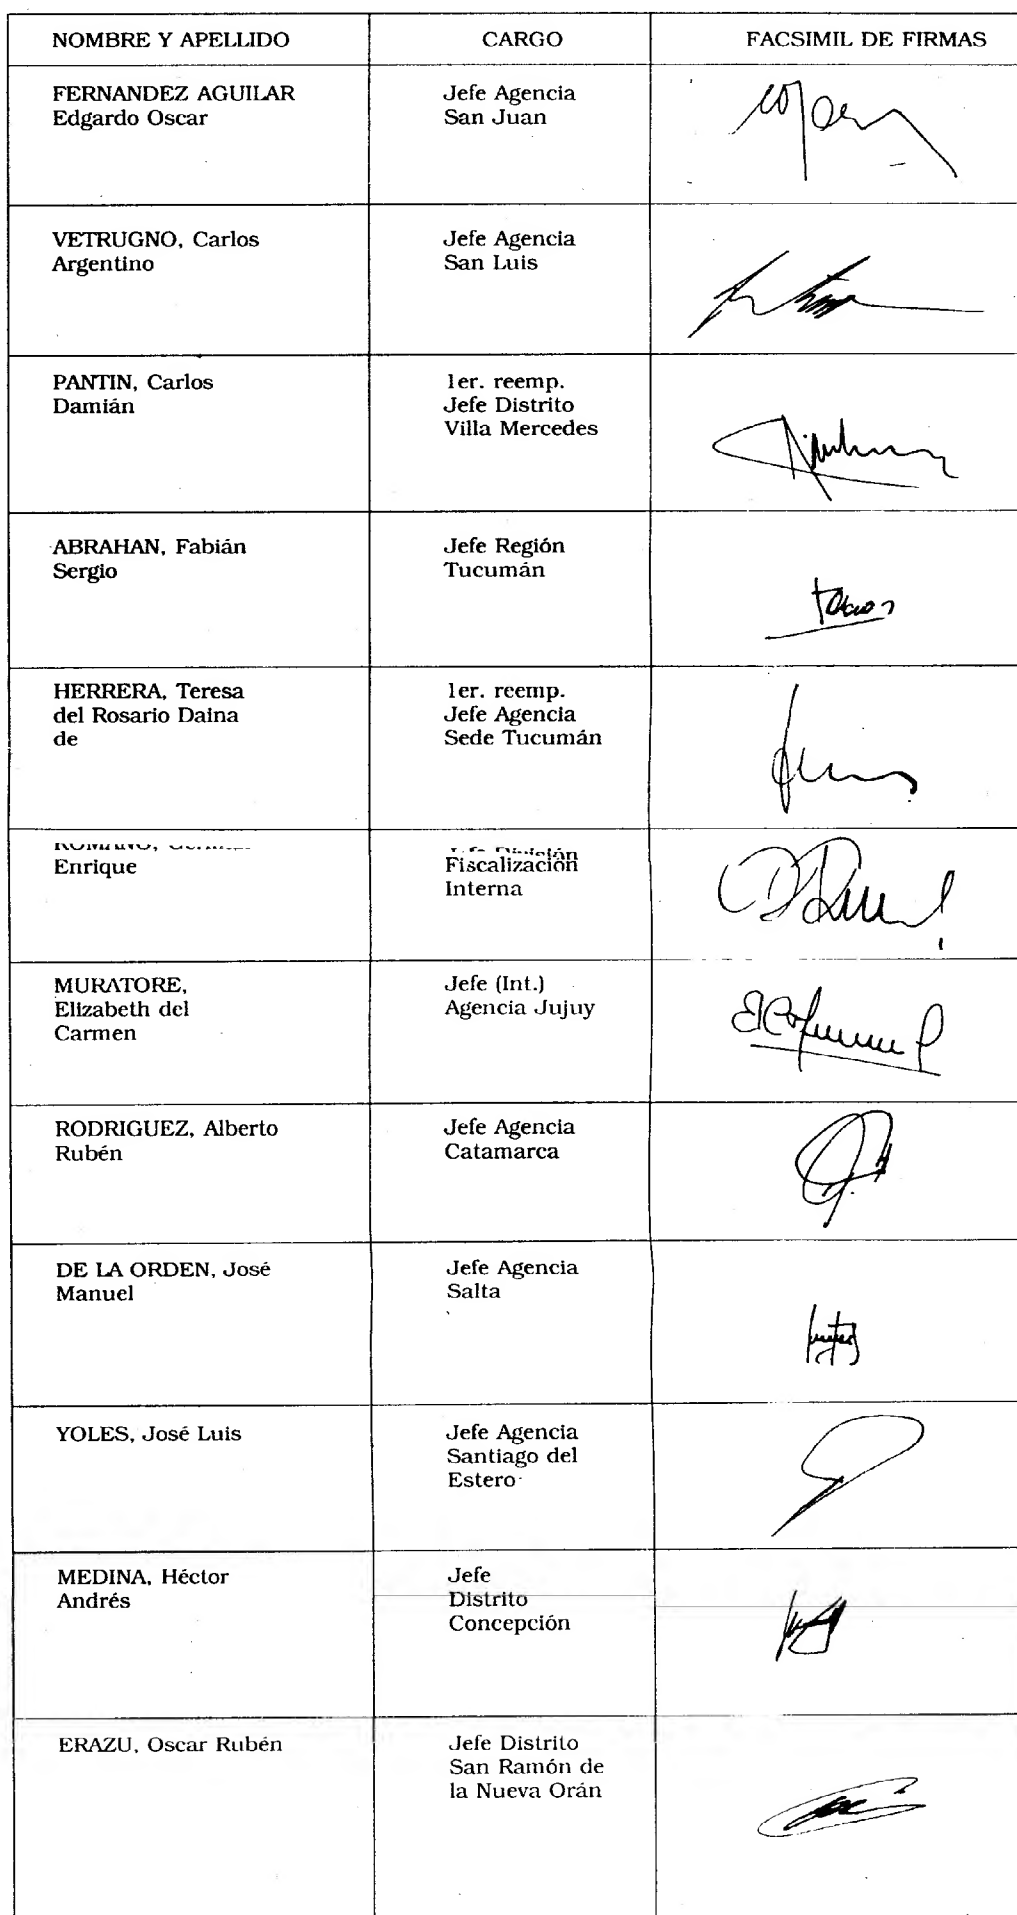 NOMBRE Y APELLIDO CARGO FACSIMIL DE FIRMAS
FERNANDEZ AGUILAR
Edgardo Oscar
Jefe Agencia
San Juan
VETRUGNO, Carlos
Argentino
Jefe Agencia
San Luis
PANTIN, Carlos
Damián
1er. reemp.
Jefe Distrito
Villa Mercedes
ABRAHAN, Fabián
Sergio
Jefe Región
Tucumán
HERRERA, Teresa
del Rosario Daina
de
1er. reemp.
Jefe Agencia
Sede Tucumán
ROMANO,
Enrique
Jefe División
Fiscalización
Interna
MURATORE,
Elizabeth del
Carmen
Jefe (Int.)
Agencia Jujuy
RODRIGUEZ, Alberto
Rubén
Jefe Agencia
Catamarca
DE LA ORDEN, José
Manuel
Jefe Agencia
Salta
YOLES, José Luis
Jefe Agencia
Santiago del
Estero
MEDINA, Héctor
Andrés
Jefe
Distrito
Concepción
ERAZU, Oscar Rubén
Jefe Distrito
San Ramón de
la Nueva Orán